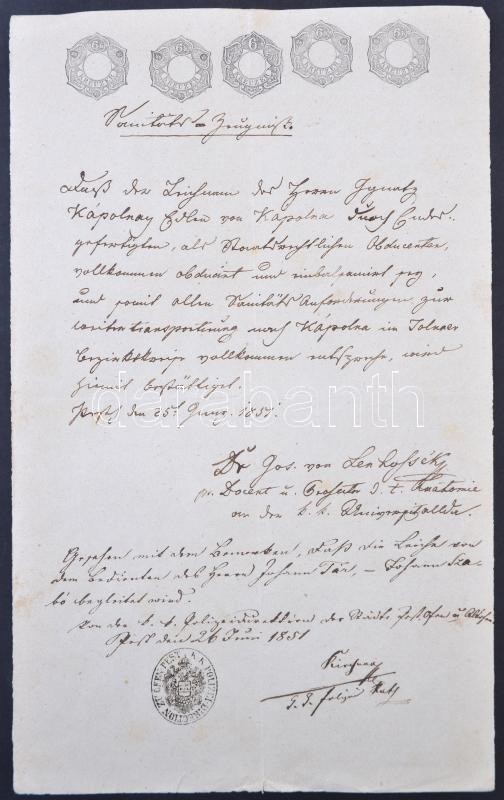 6 6 6 6 6
Sanitäts-Zeugniß.
Daß der Leichnam des Herrn Ignatz
Kápolnay Edlen von Kápolna durch Endes-
gefertigten, als Staatsrechtlichen Obducenten,
vollkommen obducirt und einbalsamirt sey,
und somit allen Sanitäts Anforderungen zur
Weitertransportirung nach Kápolna im Tolnaer
vollkommen entspreche, wird
hiemit bestättiget.
Pest den 25t Juny 1851.
Dr Jos. von Lenhossék
Docent u. Prosector d. t. Anatomie
an der k. k. Universität
Gesehen mit dem Bemerken, daß die Leiche von
dem Bedienten des Herrn Johann Tár, – Johann Sza-
bó begleitet wird.
Von der k. k. Polizeidirektion der Städte Pest, Ofen u. Altofen
Pest den 26 Juni 1851
K.K. POLIZEI DIRECTION ZU OFEN PEST
darabanth